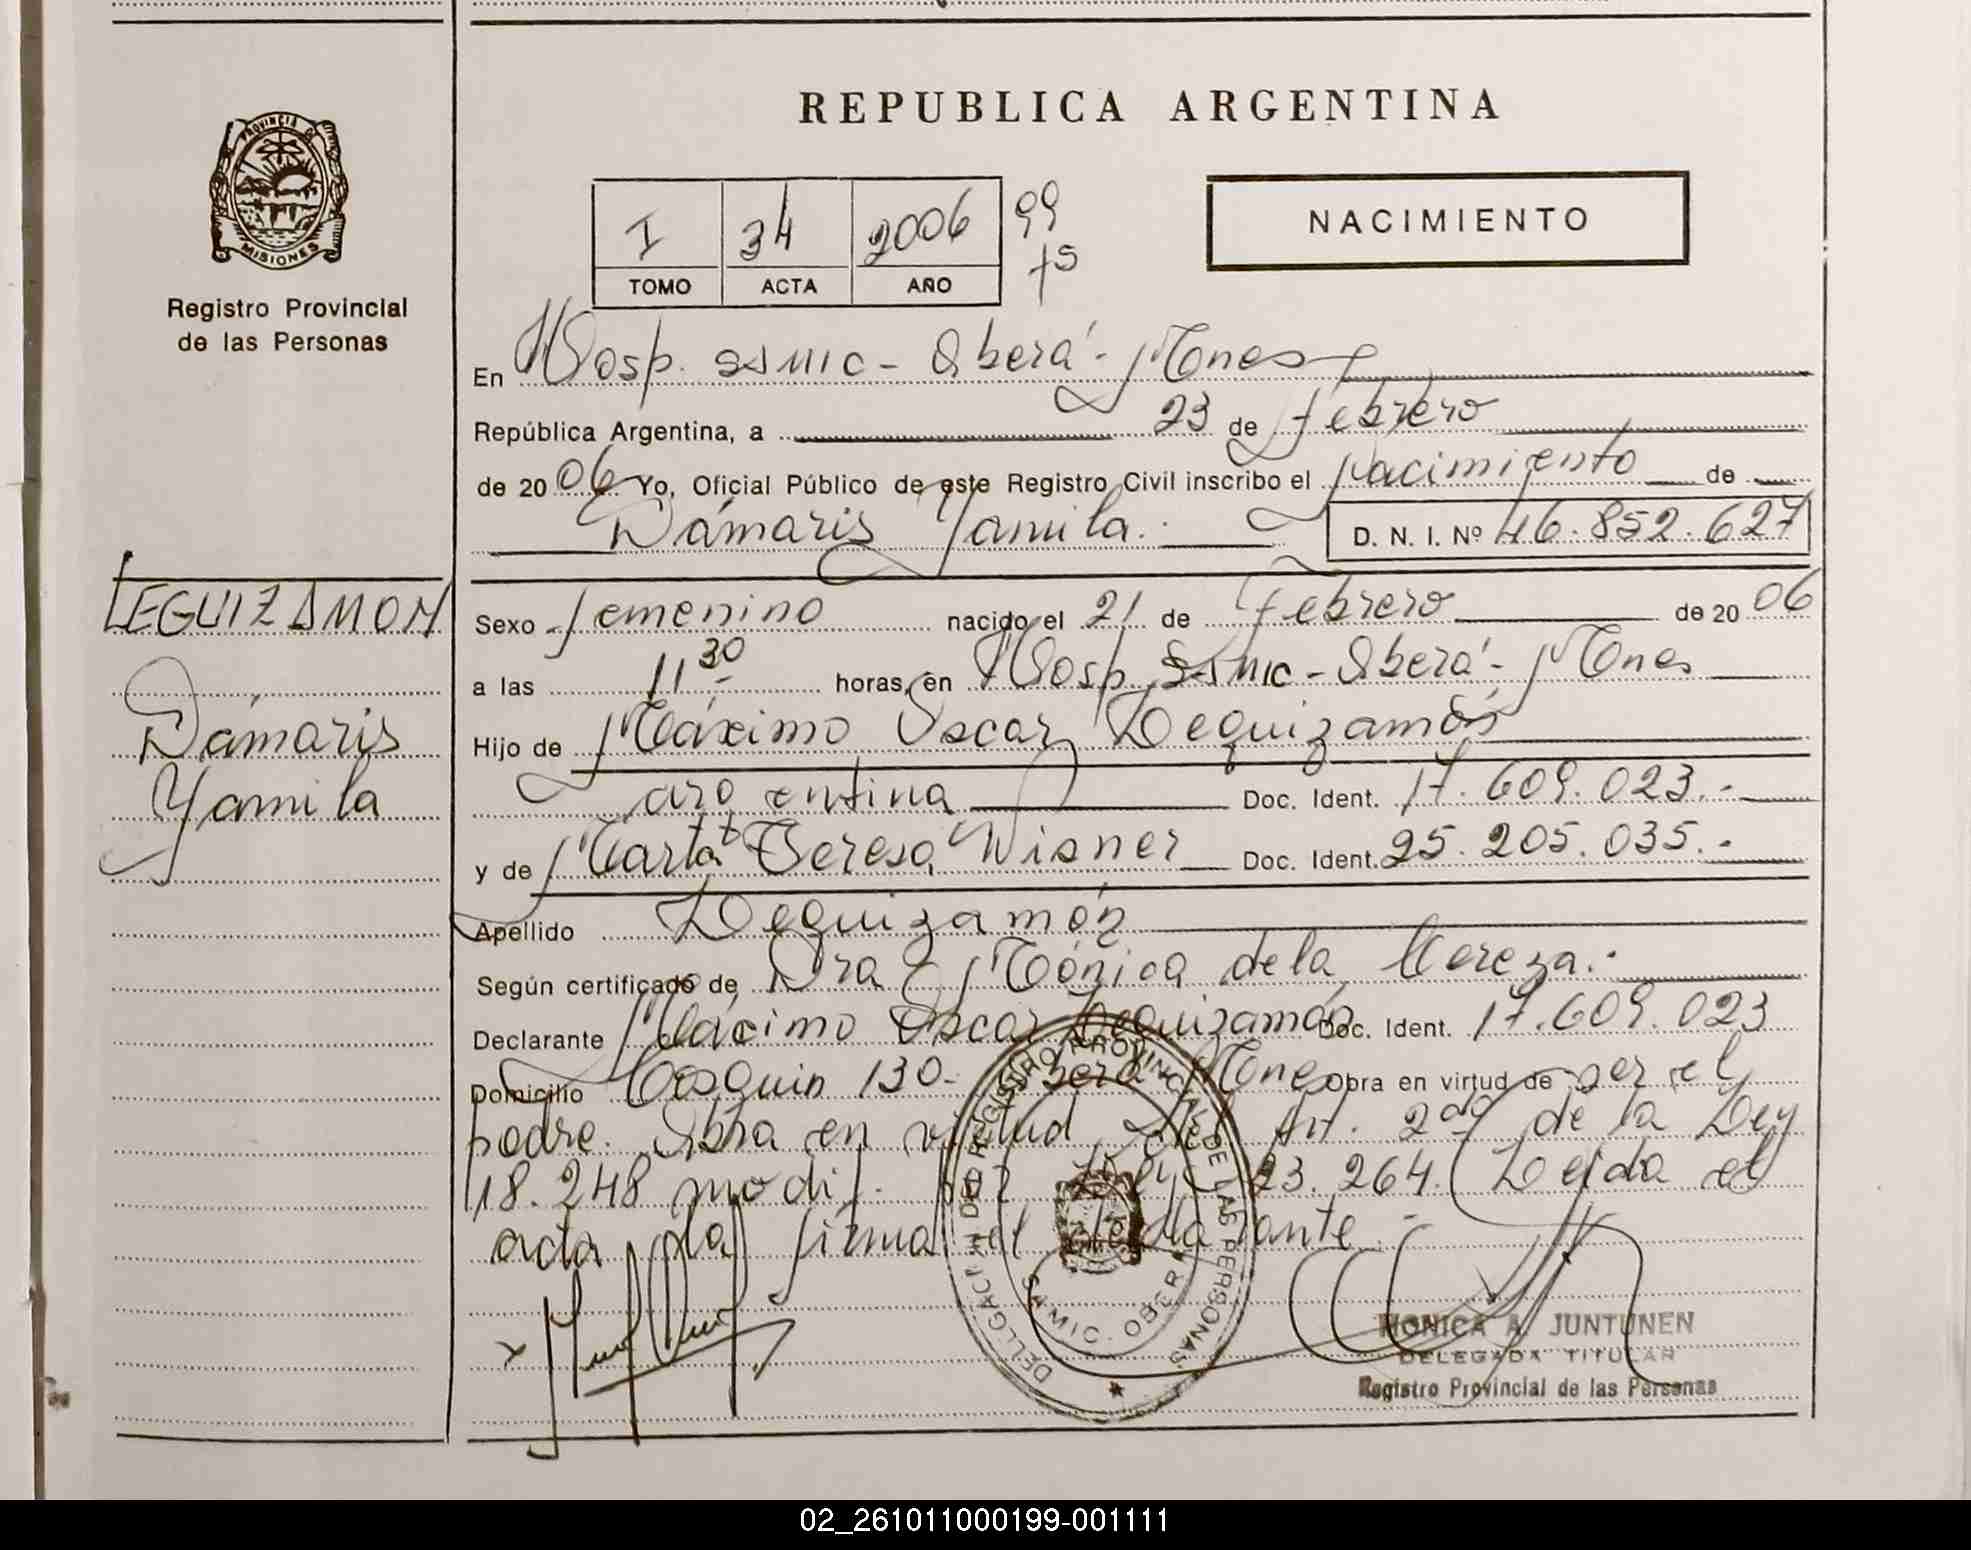 REPUBLICA ARGENTINA
PROVINCIA DE MISIONES
Registro Provincial
de las Personas
I 34 2006 99
TOMO ACTA AÑO 75
NACIMIENTO
En Hosp. SAMIC - Oberá - Mnes
República Argentina, a 23 de febrero
de 2006 Yo, Oficial Público de este Registro Civil inscribo el nacimiento de
Dámaris Yamila. D. N. I. Nº 46.852.627
LEGUIZAMON
Dámaris
Yamila
Sexo femenino nacido el 21 de febrero de 2006
a las 11 30 horas, en Hosp. SAMIC - Oberá - Mnes
Hijo de Máximo Oscar Leguizamón
argentina Doc. Ident. 17.609.023.-
y de Marta Teresa Wisner Doc. Ident. 25.205.035.-
Apellido Leguizamón
Según certificado de Dra Mónica de la
Declarante Máximo Oscar Leguizamón Doc. Ident. 17.609.023
Domicilio Cosquin 130 - Oberá Mnes Obra en virtud de ser el
padre. Obra en virtud del Art. 2do de la Ley
18.248 modif. por Ley 23.264. Leida el
acta la firma el declarante.-
DELEGACION DEL REGISTRO PROVINCIAL DE LAS PERSONAS
SAMIC - OBERA
MONICA A. JUNTUNEN
DELEGADA TITULAR
Registro Provincial de las Personas
02_261011000199-001111